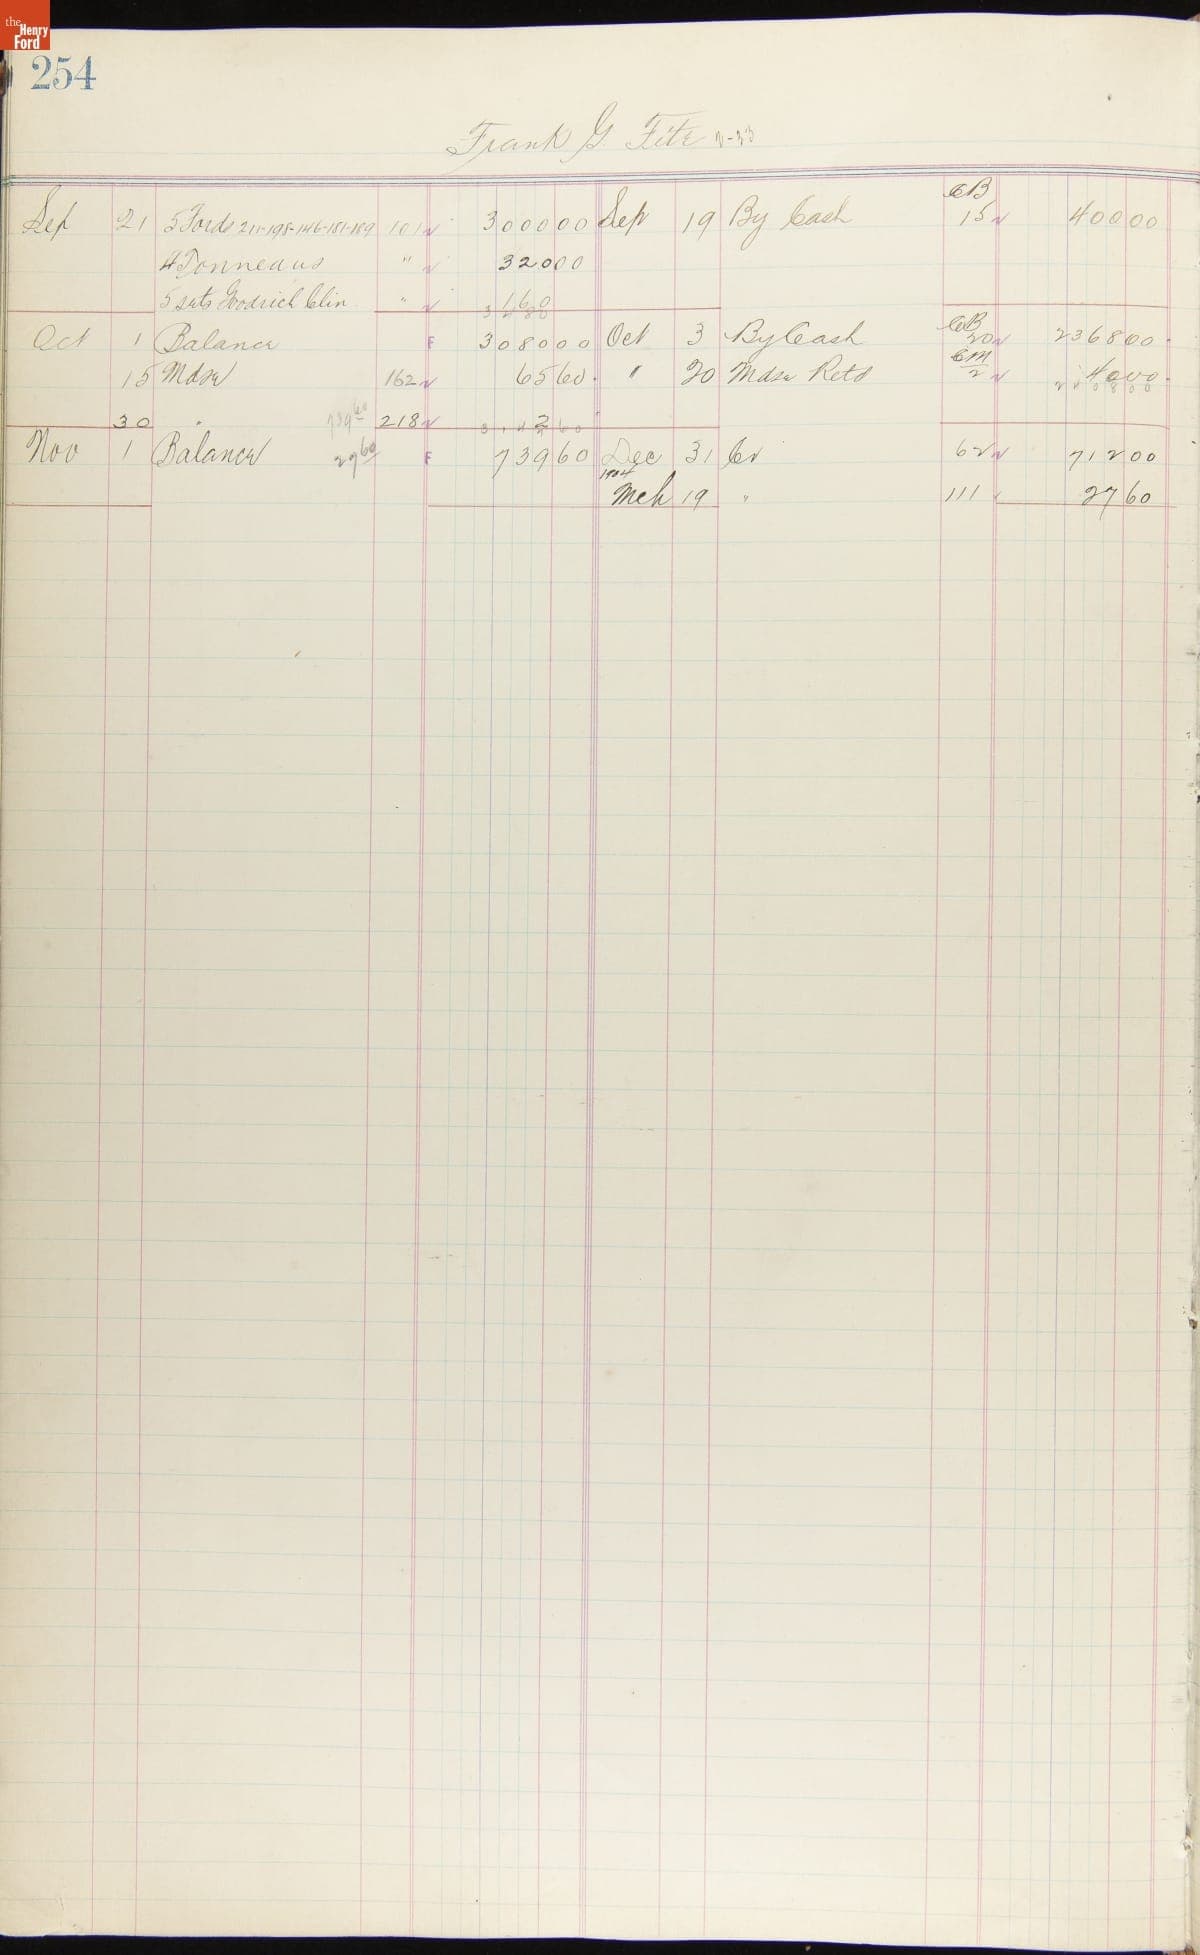 the Henry Ford
254
Frank G. Fitz
CB
Sep 21 5 Fords 211-198-146-181-189 101 3000 00 Sep 19 By Cash 15 400 00
4 Tonneaus " 320 00
5 sets Goodrich Clin " 160
3480
Oct 1 Balance F 3080 00 Oct 3 By Cash CB 20 2368 00
15 Mdse 162 65 60 " 20 Mdse Retd CM 2 40 00
2408 00
30 " 739 60 218 2
Nov 1 Balance 27 60 F 739 60 Dec 31 Cr 62 712 00
1904
Mch 19 " 111 27 60